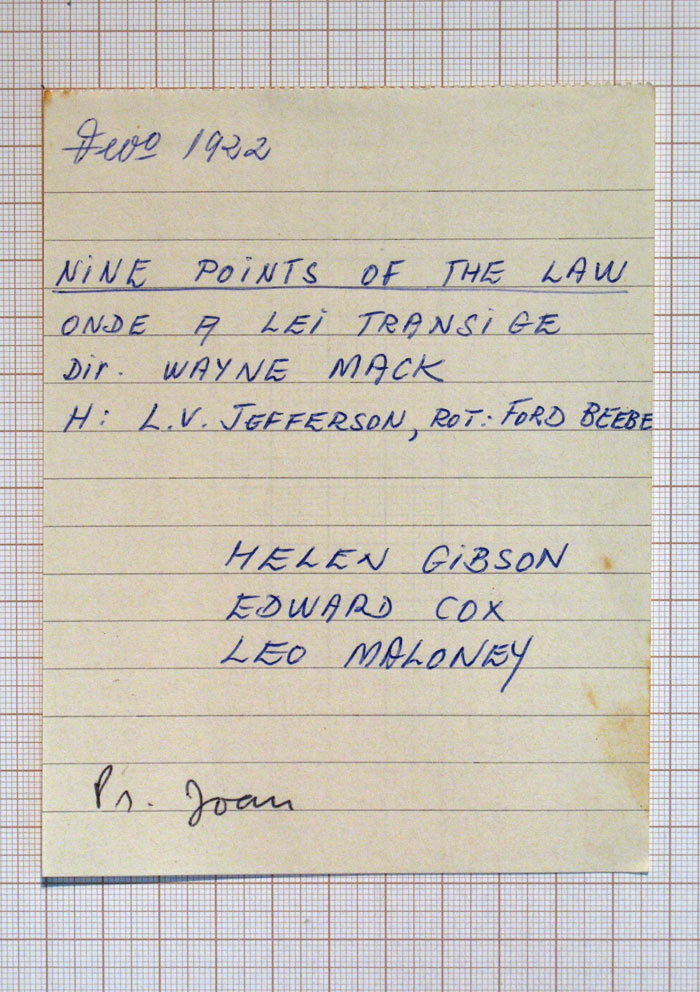 Fevº 1922
NINE POINTS OF THE LAW
ONDE A LEI TRANSIGE
Dir. WAYNE MACK
H: L.V. JEFFERSON, ROT.: FORD BEEBE
HELEN GIBSON
EDWARD COX
LEO MALONEY
Pr. Joan